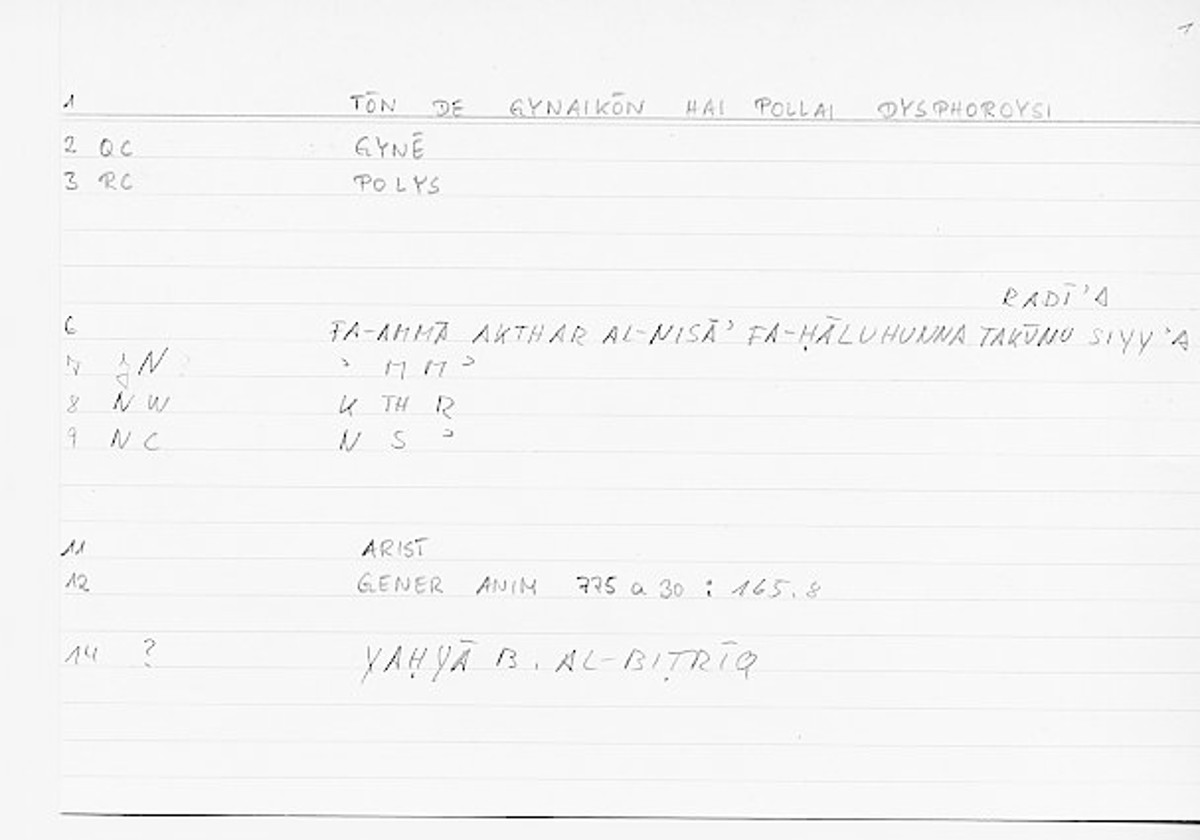 1 TŌN DE GYNAIKŌN HAI POLLAI DYSPHOROYSI
2 QC GYNĒ
3 RC POLYS
RADĪʾA
6 FA-AMMĀ AKTHAR AL-NISĀʾ FA-ḤĀLUHUNNA TAKŪNU SIYYʾA
7 N ʾ M M ʾ
8 N W K TH R
9 N C N S ʾ
11 ARIST
12 GENER ANIM 775 a 30 : 165.8
14 ? YAḤYĀ B. AL-BIṬRĪQ